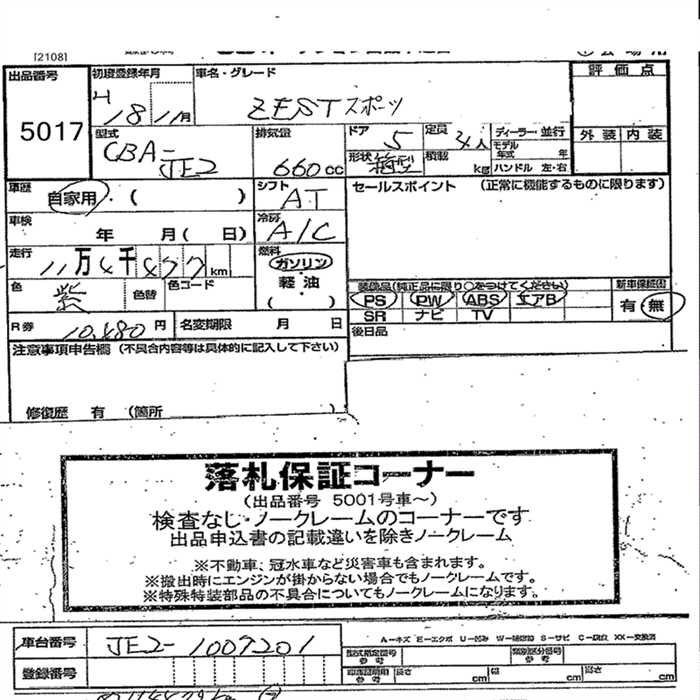 [2108]
出品番号
5017
初度登録年月
H 18 11月
車名・グレード
ZEST スポーツ
評価点
外装 内装
型式
CBA-
JE2
排気量
660cc
ドア 5
定員 4人
形状 箱型
積載 kg
ディーラー・並行
モデル年式 年
ハンドル 左・右
車歴
自家用・( )
シフト
AT
セールスポイント (正常に機能するものに限ります)
車検
年 月( 日)
冷房
A/C
走行
11万4千477km
燃料
ガソリン・
軽油
( )
色
紫
色替
色コード
装備品(純正品に限り○をつけてください)
PS PW ABS エアB
SR ナビ TV
新車保証書
有・無
後日品
R券 10,480円
名変期限 月 日
注意事項申告欄 (不具合内容等は具体的に記入して下さい)
修復歴 有 (箇所 )
落札保証コーナー
(出品番号 5001号車~)
検査なし・ノークレームのコーナーです
出品申込書の記載違いを除きノークレーム
※不動車、冠水車など災害車も含まれます。
※搬出時にエンジンが掛からない場合でもノークレームです。
※特殊特装部品の不具合についてもノークレームになります。
車台番号 JE2-1007201
A-キズ E-エクボ U-凹み W-補修跡 S-サビ C-腐食 XX-交換済
型式指定番号
参考
類別区分番号
参考
登録番号
長さ cm
幅 cm
高さ cm